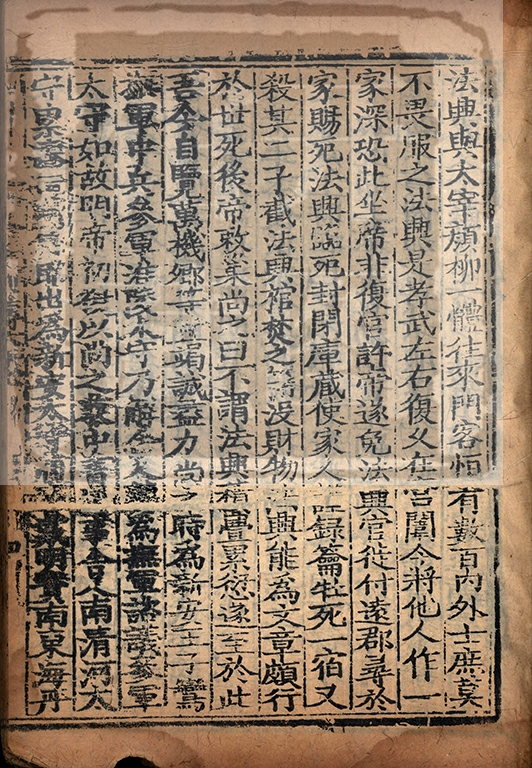 法興與太宰顔柳一體往來門客恒有數百內外士庶莫
不畏服之法興是孝武左右復久在宮闈今將他人作一
家深恐此坐席非復官許帝遂免法興官徙付遠郡尋於
家賜死法興臨死封閉庫藏使家人錄籥牡死一宿又
殺其二子截法興棺焚之籍沒財物法興能為文章頗行
於世死後帝敕巢尚之曰不謂法興積釁累愆遂至於此
吾今自覽萬機卿等宜竭誠盡力尚之時為新安王子鸞
撫軍中兵參軍淮陵太守乃解舍人為撫軍諮議參軍
太守如故明帝初以尚之兼中書事舍人南清河太
守累出為新安太守戴明寶南東海丹